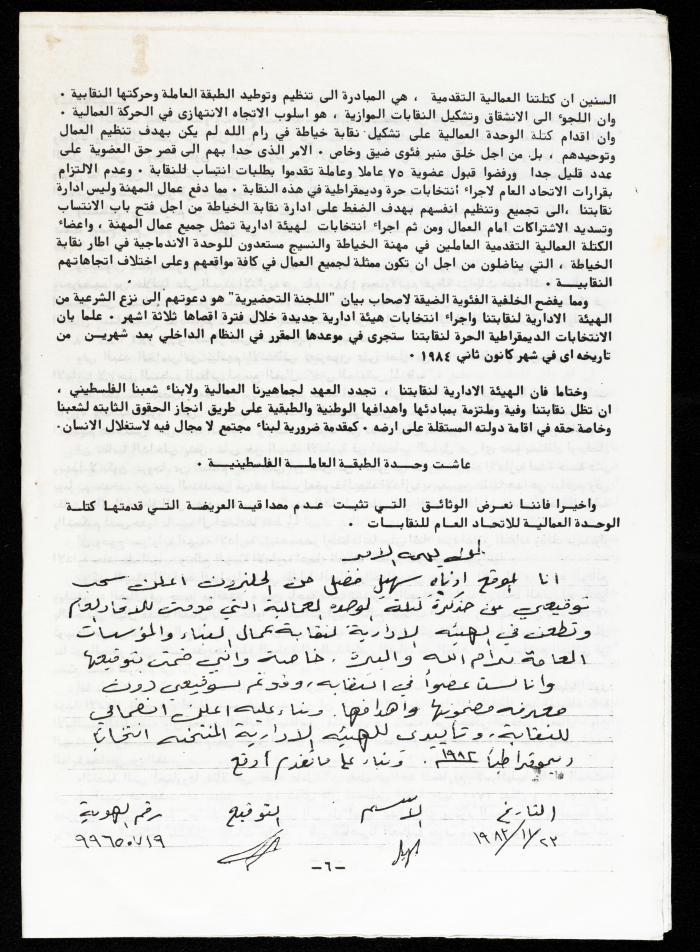 السنين ان كتلتنا العمالية التقدمية ، هي المبادرة الى تنظيم وتوطيد الطبقة العاملة وحركتها النقابية .
وان اللجوء الى الانشقاق وتشكيل النقابات الموازية ، هو اسلوب الاتجاه الانتهازى في الحركة العمالية .
وان اقدام كتلة الوحدة العمالية على تشكيل نقابة خياطة في رام الله لم يكن بهدف تنظيم العمال
وتوحيدهم ، بل من اجل خلق منبر فئوى ضيق وخاص . الامر الذى حدا بهم الى قصر حق العضوية على
عدد قليل جدا ورفضوا قبول عضوية ٧٥ عاملا وعاملة تقدموا بطلبات انتساب للنقابة . وعدم الالتزام
بقرارات الاتحاد العام لاجراء أنتخابات حرة وديمقراطية في هذه النقابة . مما دفع عمال المهنة وليس ادارة
نقابتنا ،الى تجميع وتنظيم انفسهم بهدف الضغط على ادارة نقابة الخياطة من اجل فتح باب الانتساب
وتسديد الاشتراكات امام العمال ومن ثم اجراء انتخابات لهيئة ادارية تمثل جميع عمال المهنة ، واعضاء
الكتلة العمالية التقدمية العاملين في مهنة الخياطة والنسيج مستعدون للوحدة الاندماجية في اطار نقابة
الخياطة ، التي يناضلون من اجل ان تكون ممثلة لجميع العمال في كافة مواقعهم وعلى اختلاف اتجاهاتهم
النقابية .
ومما يفضح الخلفية الفئوية الضيقة لاصحاب بيان "اللجنة التحضيرية" هو دعوتهم إلى نزع الشرعية من
الهيئة الادارية لنقابتنا واجراء انتخابات هيئة ادارية جديدة خلال فترة اقصاها ثلاثة اشهر . علما بان
الانتخابات الديمقراطية الحرة لنقابتنا ستجرى في موعدها المقرر في النظام الداخلي بعد شهرين من
تاريخه اى في شهر كانون ثاني ١٩٨٤ .
وختاما فان الهيئة الادارية لنقابتنا ، تجدد العهد لجماهيرنا العمالية ولابناء شعبنا الفلسطيني ،
ان تظل نقابتنا وفية وملتزمة بمبادئها واهدافها الوطنية والطبقية على طريق انجاز الحقوق الثابته لشعبنا
وخاصة حقه في اقامة دولته المستقلة على ارضه . كمقدمة ضرورية لبناء مجتمع لا مجال فيه لاستغلال الانسان.
عاشت وحدة الطبقة العاملة الفلسطينية .
واخيرا فاننا نعرض الوثائق التي تثبت عدم مصداقية العريضة التي قدمتها كتلة
الوحدة العمالية للاتحاد العام للنقابات .
انا الموقع ادناه سهيل فضل من الجلزون اعلن سحب
توقيعي عن مذكرة كتلة الوحده العمالية التي قدمت للاتحاد اليوم
وتطعن في الهيئه الادارية لنقابة عمال البناء والمؤسسات
العامة برام الله والبيرة . خاصة وانني قمت بتوقيعها
وانا لست عضواً في النقابه ، وقد تم توقيعي دون
معرفه مضمونها واهدافها . وبناء عليه اعلن انضمامي
للنقابة ، وتأييدي للهيئه الادارية المنتخبه انتخابا
ديموقراطيا ١٩٨٢م . وبناء على ما تقدم أوقع
التاريخ الاسم التوقيع رقم الهوية
١٩٨٣/١١/٢٣ سهيل ٩٩٦٥٠٧١٩
-٦-